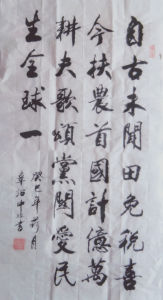 自古未聞田免税喜
今扶農首國計億萬
耕夫歌頌黨關愛民
生全球一
癸巳年荷月